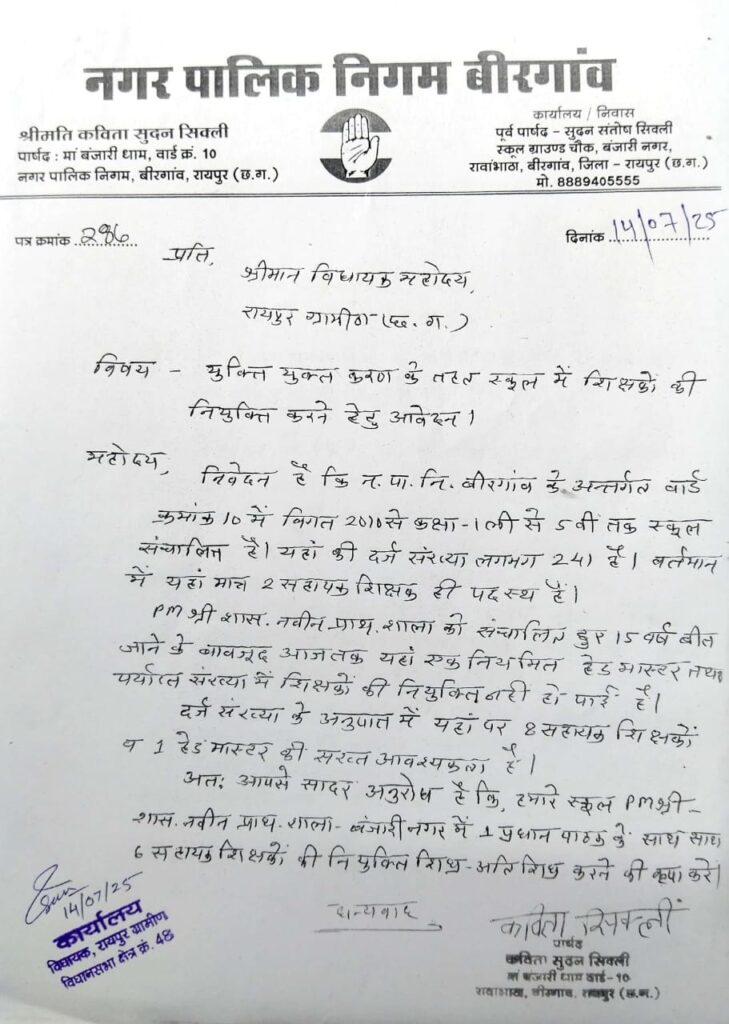 नगर पालिक निगम बीरगांव
श्रीमति कविता सुदन सिक्ली
पार्षद : मां बंजारी धाम, वार्ड क्रं. 10
नगर पालिक निगम, बीरगांव, रायपुर (छ.ग.)
कार्यालय / निवास
पूर्व पार्षद - सुदन संतोष सिक्ली
स्कूल ग्राउण्ड चौक, बंजारी नगर,
रावांभाठा, बीरगांव, जिला - रायपुर (छ.ग.)
मो. 8889405555
पत्र कमांक 286
दिनांक 14/07/25
प्रति,
श्रीमान विधायक महोदय,
रायपुर ग्रामीण (छ.ग.)
विषय - युक्ति युक्त करण के तहत स्कूल में शिक्षकों की
नियुक्ति करने हेतु आवेदन।
महोदय,
निवेदन है कि न.पा.नि. बीरगांव के अन्तर्गत वार्ड
क्रमांक 10 में विगत 2010 से कक्षा-1ली से 5वी तक स्कूल
संचालित है। यहां की दर्ज संख्या लगभग 241 है। वर्तमान
में यहां मात्र 2 सहायक शिक्षक ही पदस्थ हैं।
PM श्री शास. नवीन प्राथ. शाला को संचालित हुए 15 वर्ष बीत
जाने के बावजूद आज तक यहां एक नियमित हेड मास्टर तथा
पर्याप्त संख्या में शिक्षकों की नियुक्ति नही हो पाई है।
दर्ज संख्या के अनुपात में यहां पर 8 सहायक शिक्षकों
व 1 हेड मास्टर की सख्त आवश्यकता है।
अतः आपसे सादर अनुरोध है कि, हमारे स्कूल PM श्री-
शास. नवीन प्राथ. शाला- बंजारी नगर में 1 प्रधान पाठक के साथ साथ
6 सहायक शिक्षकों की नियुक्ति शिघ्र-अति शिघ्र करने की कृपा करें।
धन्यवाद
14/07/25
कार्यालय
विधायक, रायपुर ग्रामीण
विधानसभा क्षेत्र क्रं. 48
कविता सिक्लीं
पार्षद
कविता सुदन सिक्ली
मां बंजारी धाम वार्ड-10
रावांभाठा, बीरगांव, रायपुर (छ.ग.)